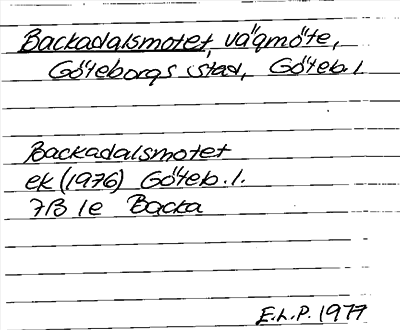 Backadalsmotet, vägmöte,
Göteborgs stad, Göteb. l.
Backadalsmotet
ek (1976) Göteb. l.
7B 1e Backa
E.L.P. 1977